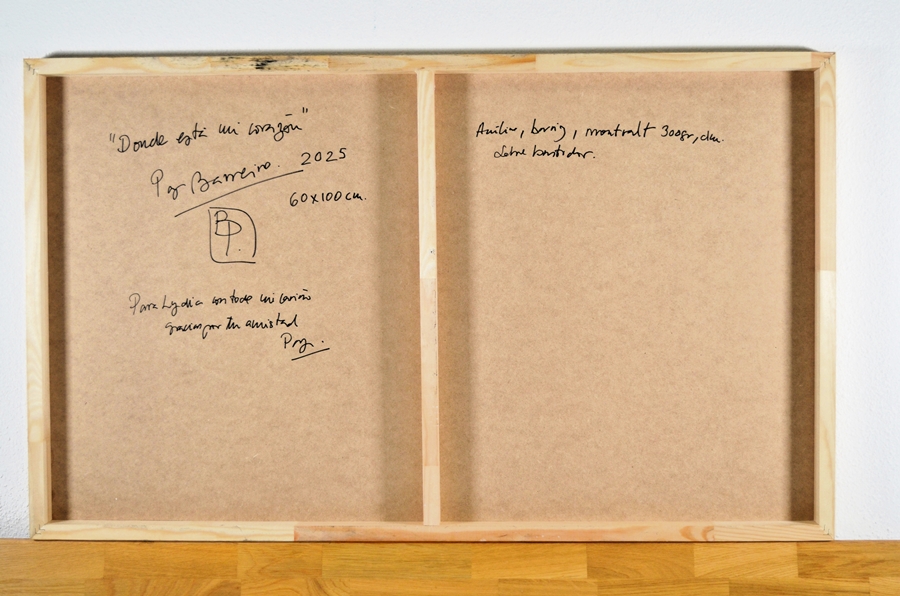 "Donde está mi corazón"
Paz Barreiro. 2025
60x100cm.
BP.
Para Lydia con todo mi cariño
gracias por tu amistad
Paz.
montvalt 300gr,
sobre bastidor.